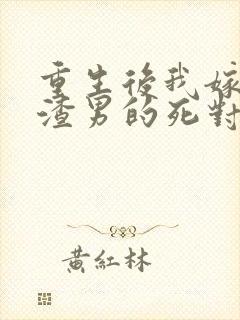 重生後我嫁
渣男的死對
黃紅林